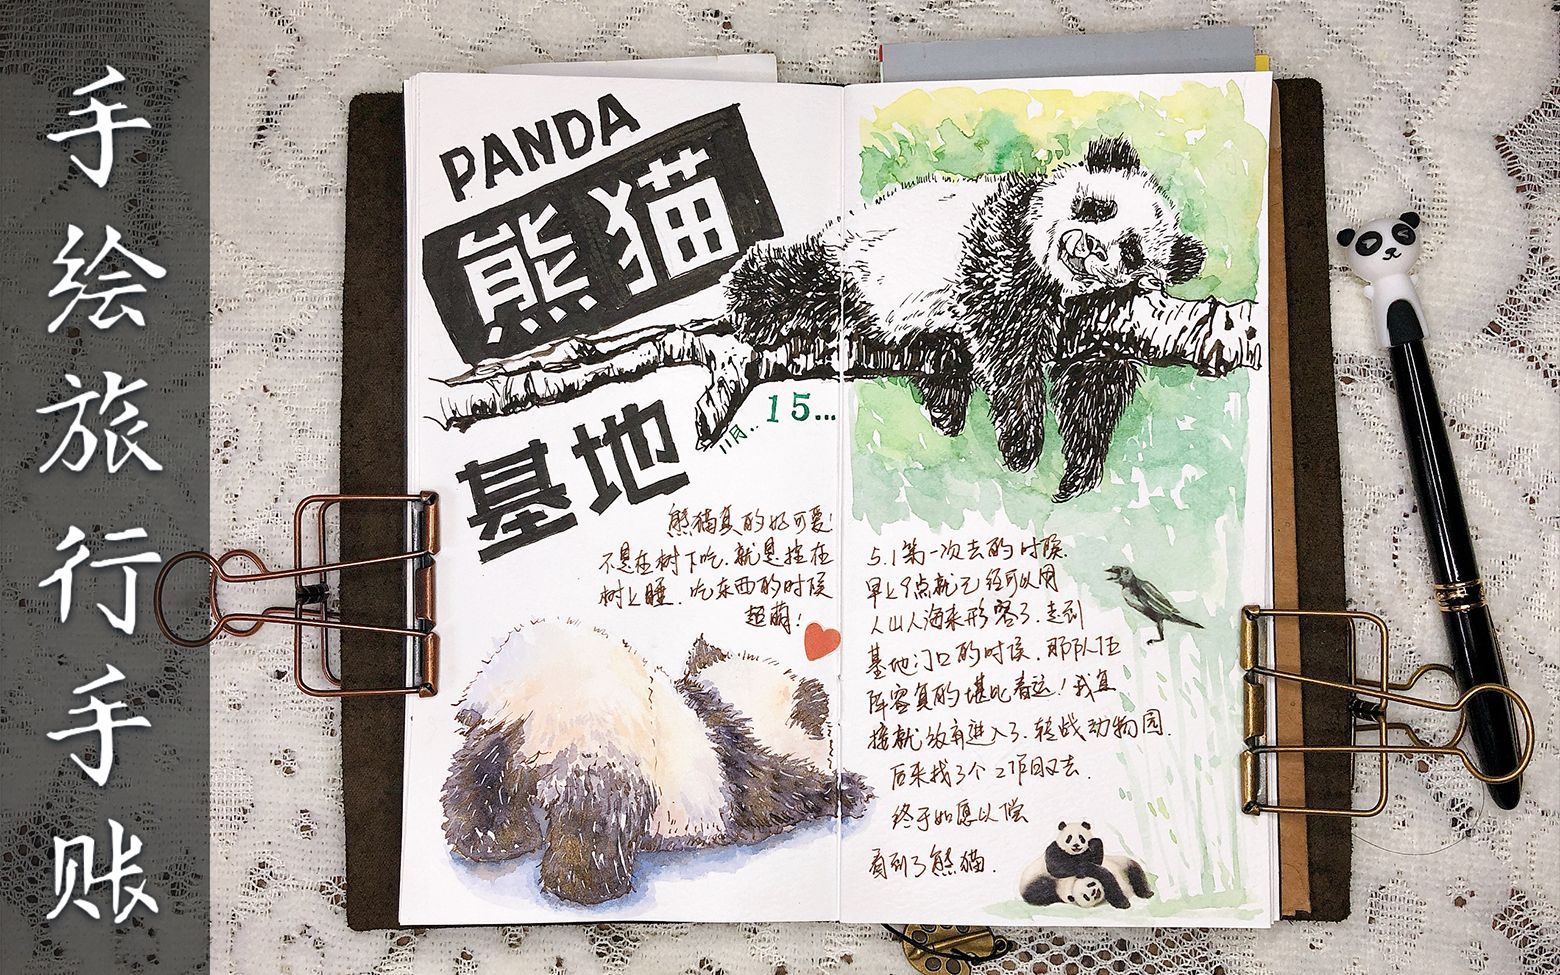 手绘旅行手账
PANDA
熊猫
基地
11月..
15...
熊猫真的好可爱!
不是在树下吃.就是挂在
树上睡.吃东西的时候
超萌!
5.1第一次去的时候.
早上9点就已经可以用
人山人海来形容了.走到
基地门口的时候.那队伍
阵容真的堪比春运!我直
接就放弃进入了.转战动物园.
后来找了个工作日又去.
终于如愿以偿
看到了熊猫.